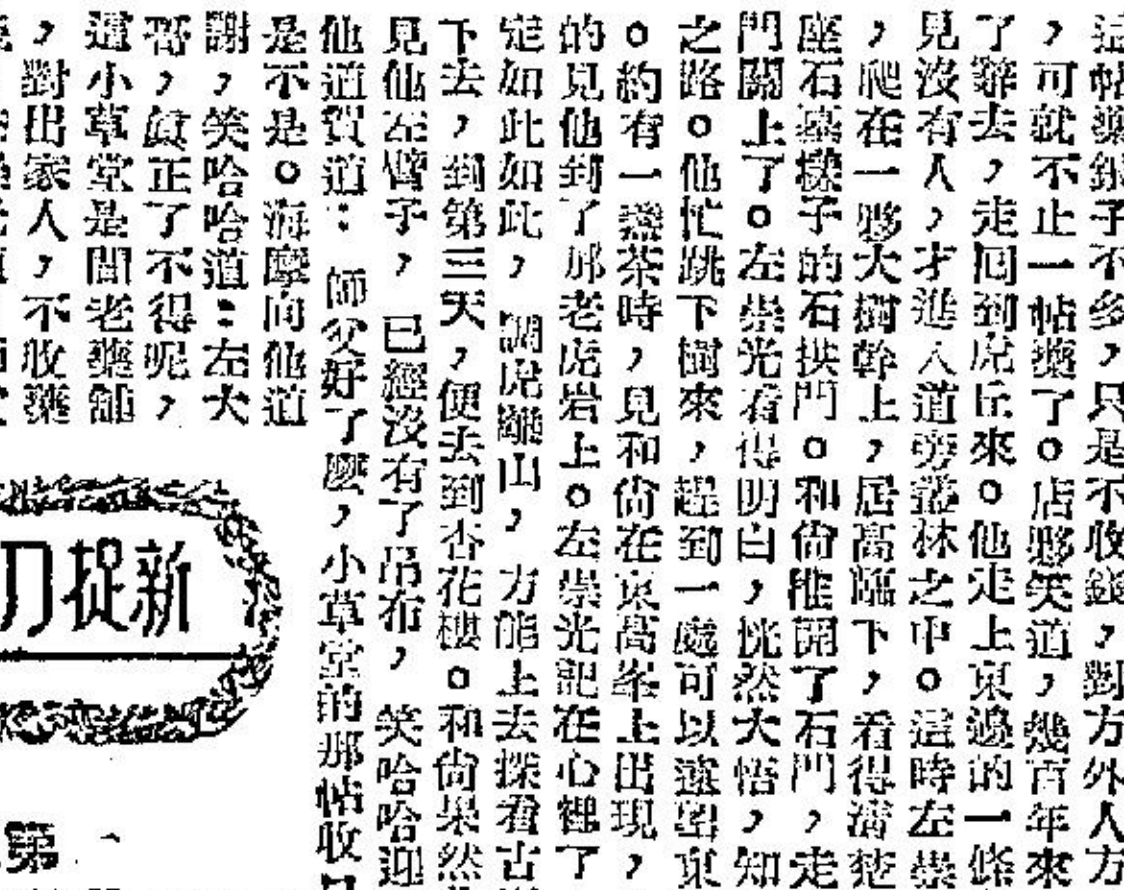 這帖藥銀子不多，只是不收錢，對方外人方
，可就不止一帖藥了。店夥笑道，幾百年來
了辭去，走回到虎丘來。他走上東邊的一條
見沒有人，才進入道旁叢林之中。這時左崇
，爬在一夥大樹幹上，居高臨下，看得清楚
座石墓樣子的石拱門。和尙推開了石門，走
門關上了。左崇光看得明白，恍然大悟，知
之路。他忙跳下樹來，趕到一處可以遠望東
。約有一盞茶時，見和尙在東高峯上出現，
的見他到了那老虎岩上。左崇光記在心裡了
定如此如此，調虎離山，方能上去探看古
下去，到第三天，便去到杏花樓。和尙果然
見他左臂子，已經沒有了吊布，笑哈哈迎
他道賀道：師父好了麼，小草堂的那帖收
是不是。海摩向他道
謝，笑哈哈道：左大
哥，眞正了不得呢，
還小草堂是間老藥舖
，對出家人，不收藥
新捉刀
第一